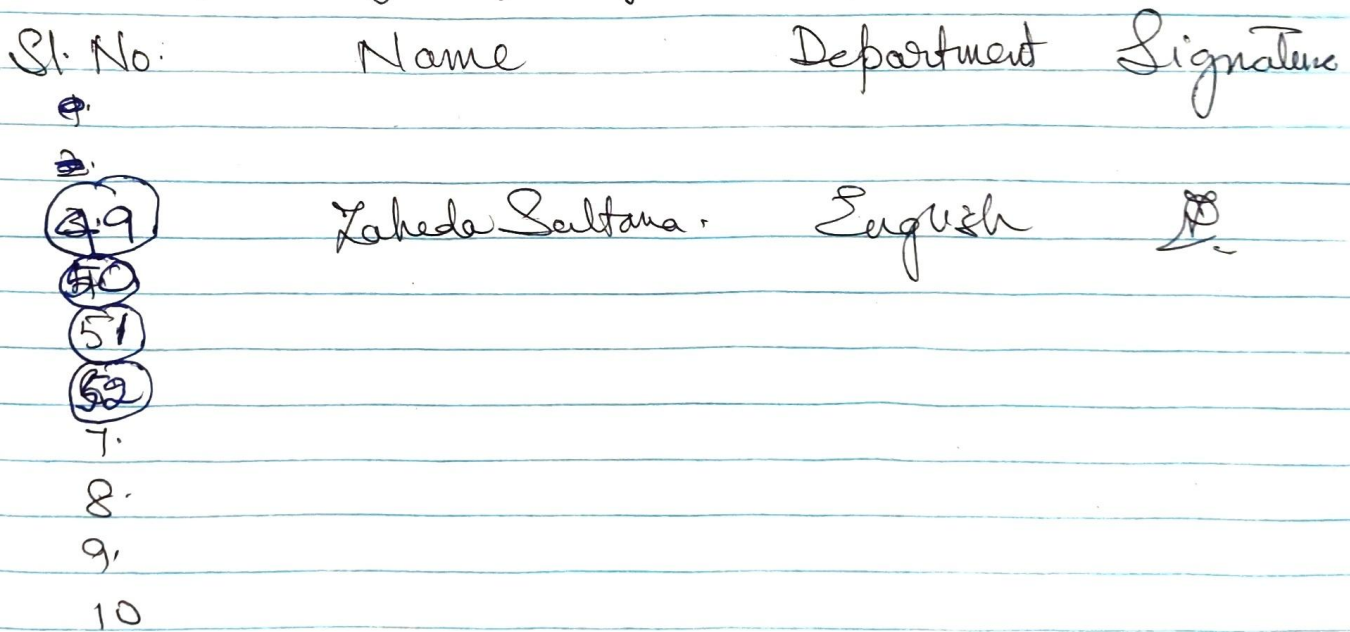 Sl. No. Name Department Signature
49 Zaheda Sultana. English
50
51
52
7.
8.
9.
10